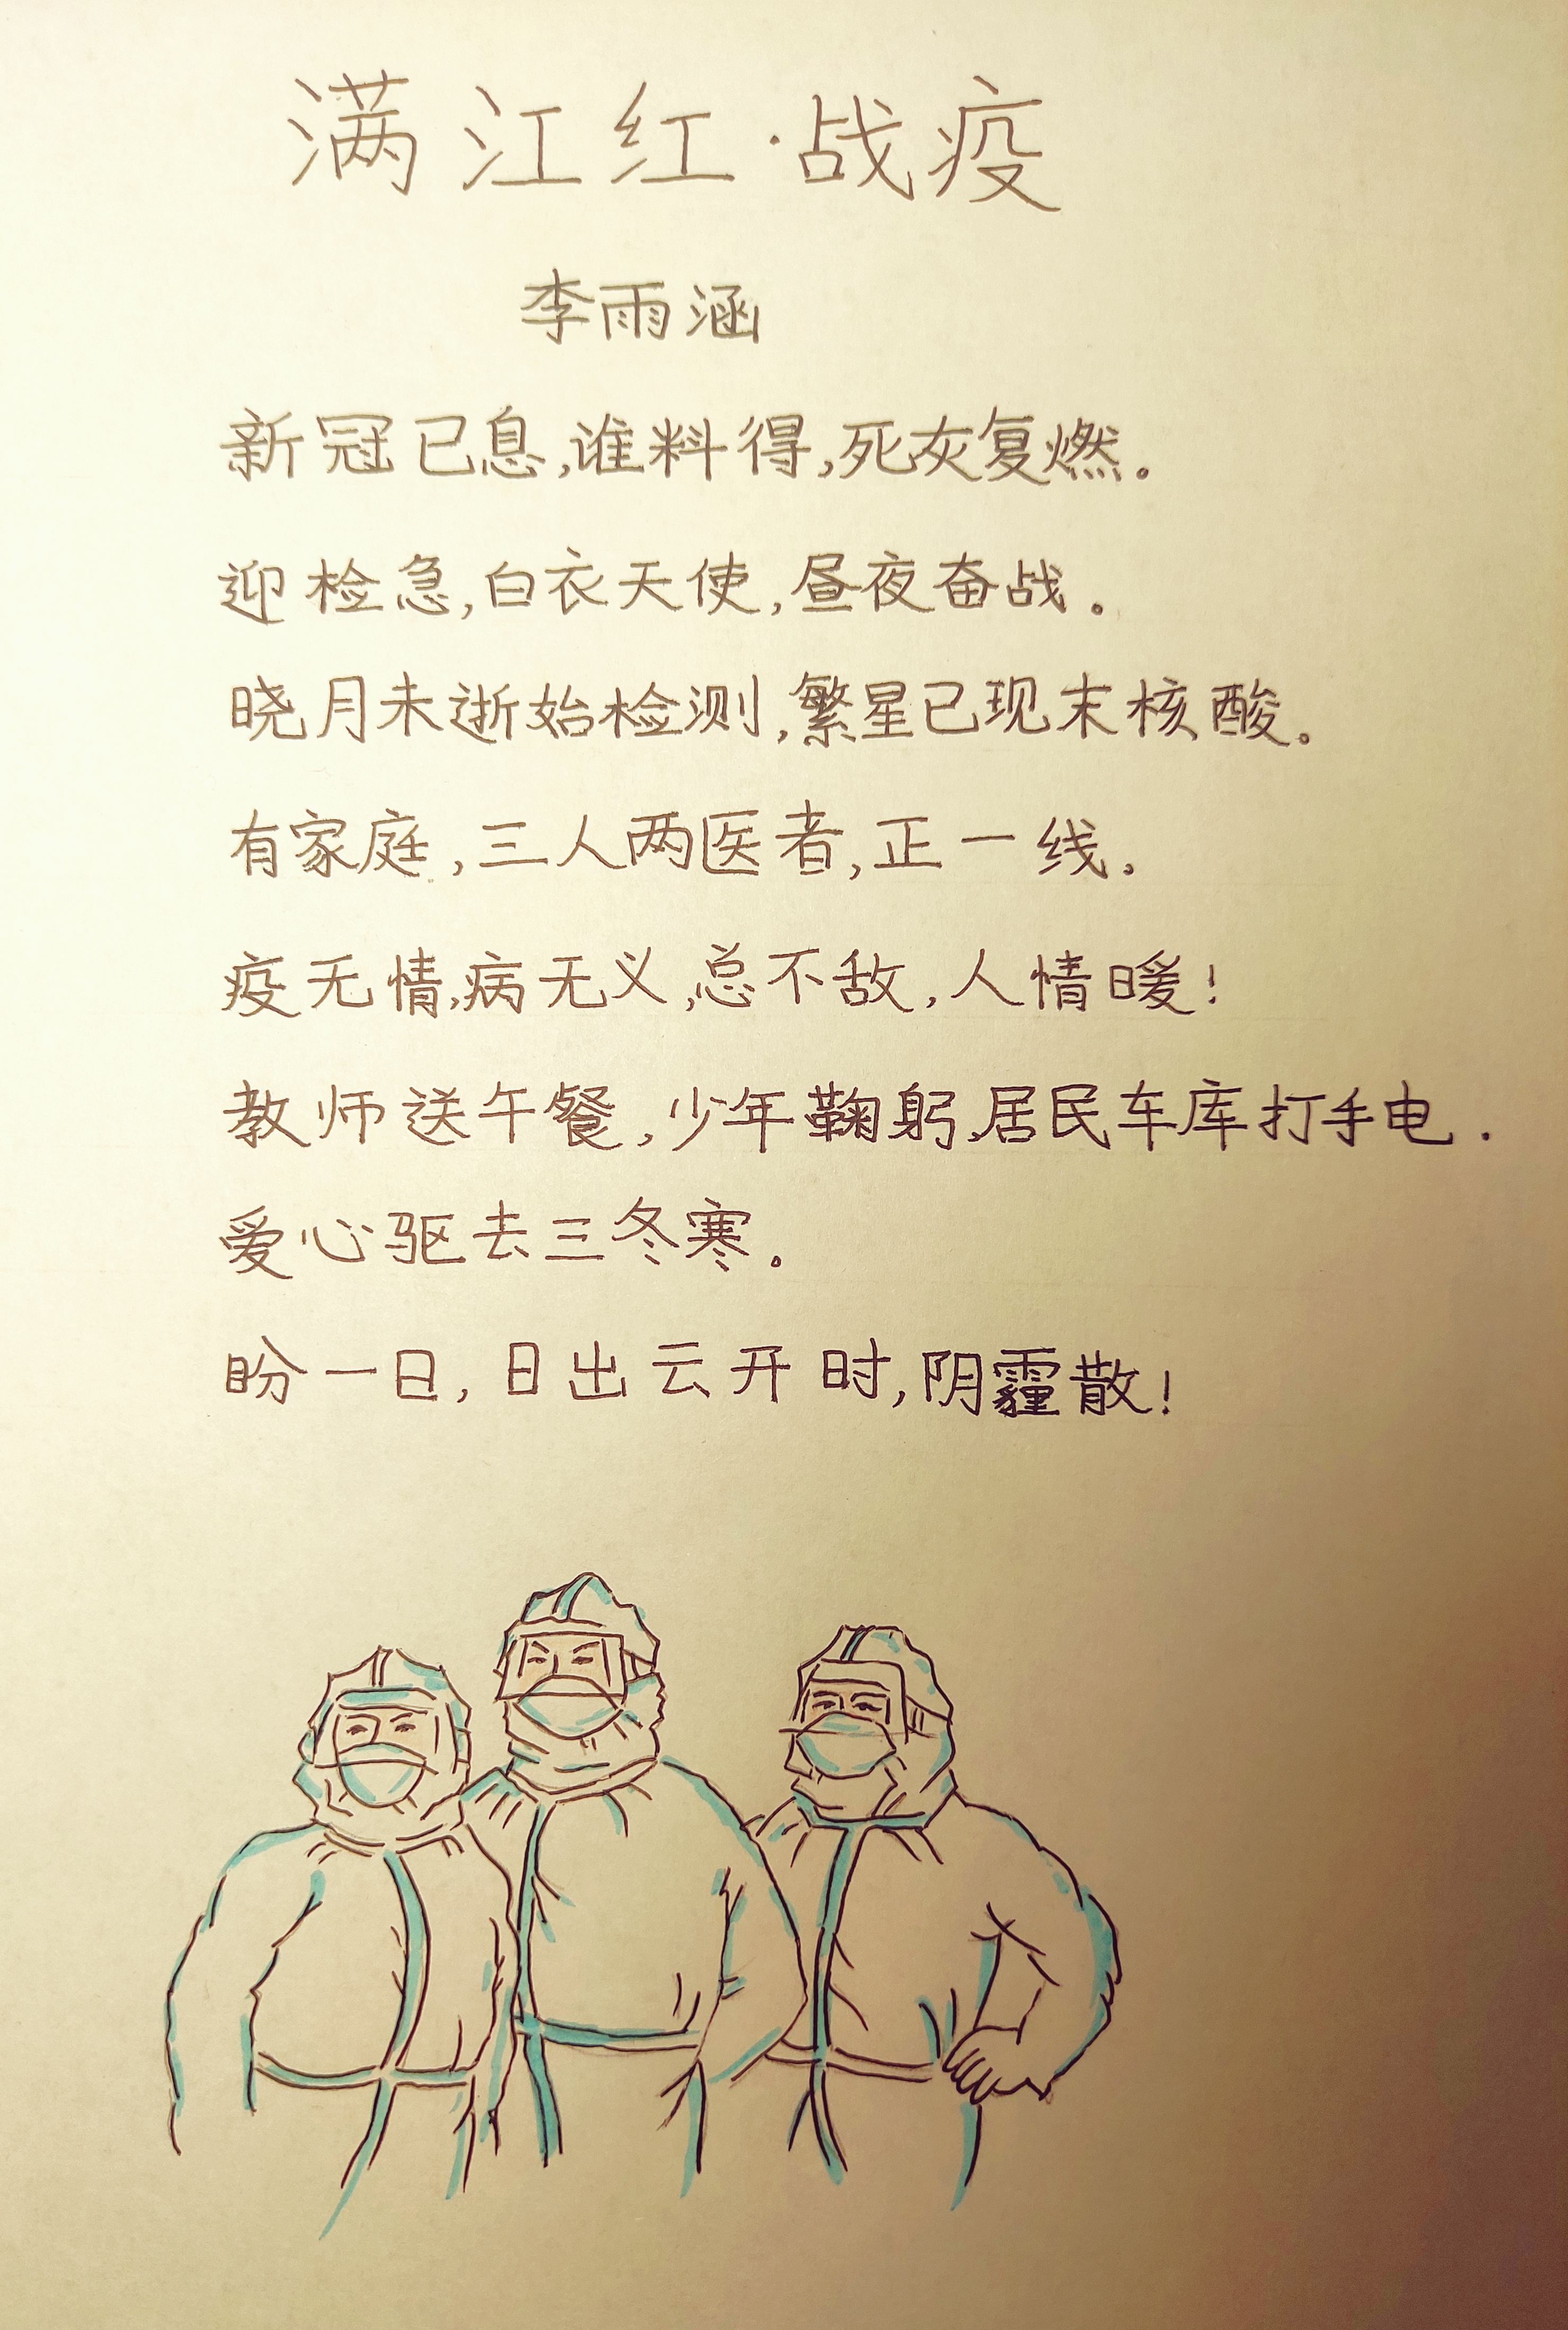 满江红·战疫
李雨涵
新冠已息,谁料得,死灰复燃。
迎检急,白衣天使,昼夜奋战。
晓月未逝始检测,繁星已现末核酸。
有家庭,三人两医者,正一线。
疫无情,病无义,总不敌,人情暖!
教师送午餐,少年鞠躬,居民车库打手电.
爱心驱去三冬寒。
盼一日,日出云开时,阴霾散!